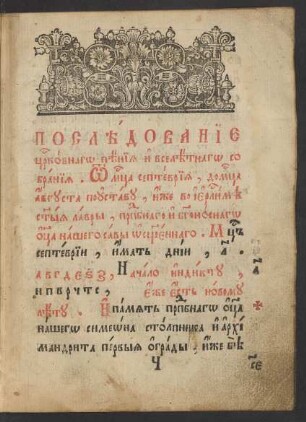 ПОСЛѢ́ДОВАНЇЕ
цр҃ко́внагѡ пѣ́нїѧ и҆ всѧлѣ́тнагѡ со
бра́нїѧ . Ѿ мц҃а септе́врїѧ , до мц҃а
а҆́вгꙋста по ᲂу҆ста́вꙋ , и҆́же во і҆ерⷭ҇ли́мѣ
ст҃ы́ѧ ла́vры , прпⷣбнагѡ и҆ бг҃оно́снагѡ
ѻ҆ц҃а̀ на́шегѡ са́вы ѡ҆сщ҃е́ннагѡ . Мцⷭ҇ъ
септе́врїи , и҆́мать дні́й , л҃ .
А В Г Д Е Ѕ З , Нача́ло і҆нди́ктꙋ ,
и п в р ч т с , Є҆́же є҆́сть но́вомꙋ
лѣ́тꙋ . И҆ па́мѧть прпⷣбнагѡ ѻ҆ц҃а̀
на́шегѡ сѷмеѡ́на сто́лпника и҆ а҆рхї
мандри́та пе́рвыѧ ѡ҆гра́ды , и҆́же бѣ̀
а҃
Ч